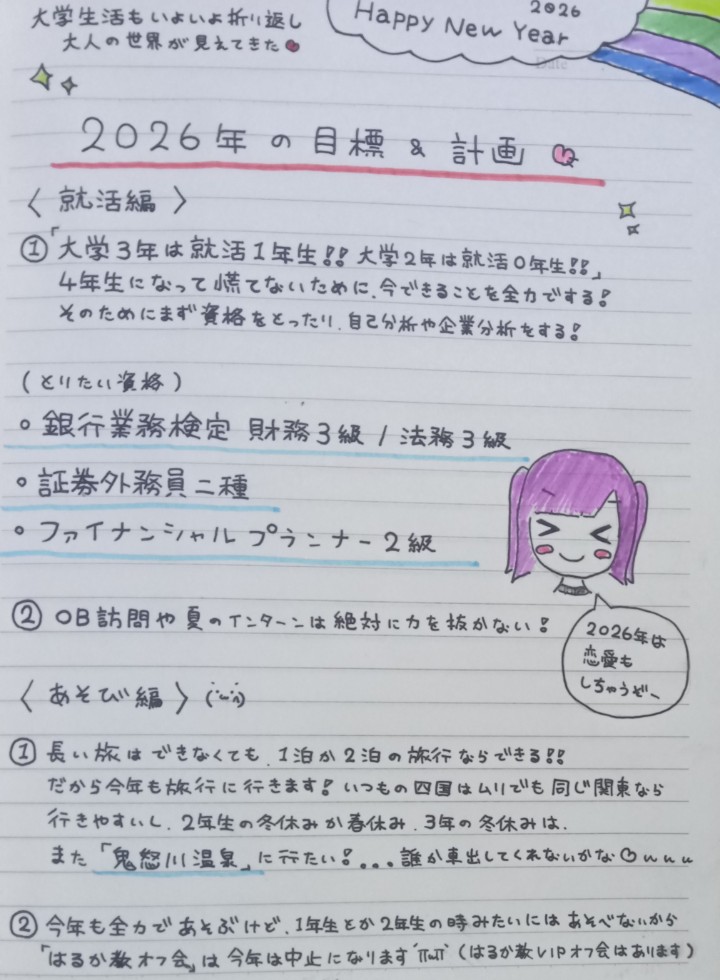 大学生活もいよいよ折り返し
大人の世界が見えてきた
2026
Happy New Year
Date
2026年の目標&計画
〈就活編〉
①「大学3年は就活1年生!! 大学2年は就活0年生!!」
4年生になって慌てないために、今できることを全力でする!
そのためにまず資格をとったり、自己分析や企業分析をする!
(とりたい資格)
○銀行業務検定 財務3級 / 法務3級
○証券外務員二種
○ファイナンシャルプランナー2級
②OB訪問や夏のインターンは絶対に力を抜かない!
2026年は
恋愛も
しちゃうぞ〜
〈あそび編〉
①長い旅はできなくても、1泊か2泊の旅行ならできる!!
だから今年も旅行に行きます! いつもの四国はムリでも同じ関東なら
行きやすいし、2年生の冬休みか春休み、3年の冬休みは、
また「鬼怒川温泉」に行たい!...誰か車出してくれないかなwww
②今年も全力であそぶけど、1年生とか2年生の時みたいにはあそべないから
「はるか教オフ会」は今年は中止になります(はるか教VIPオフ会はあります)